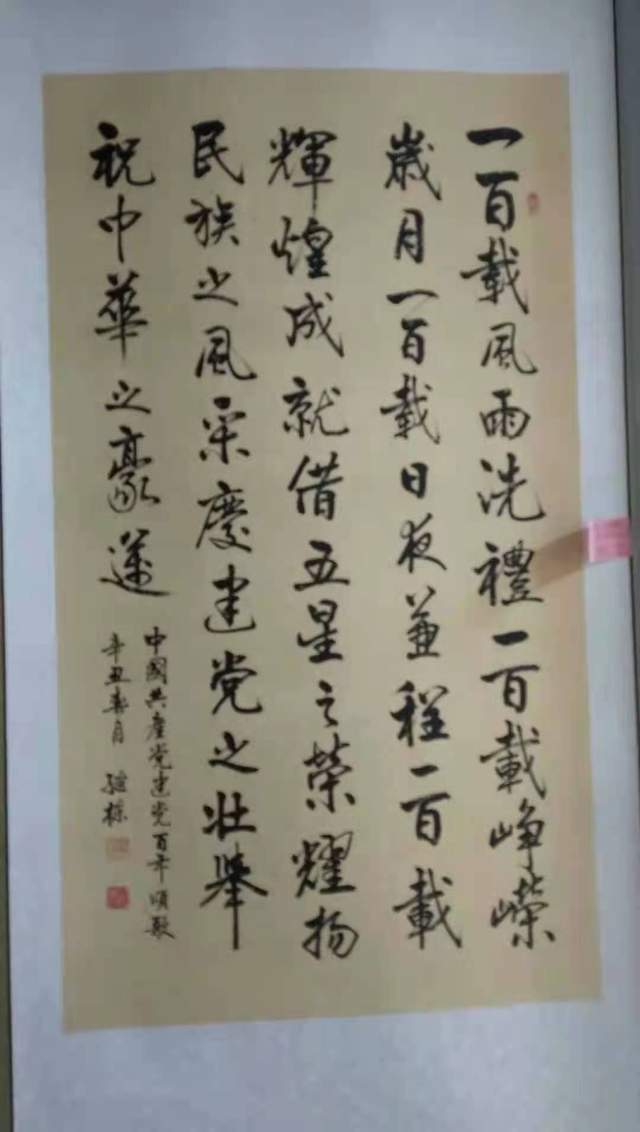 一百載風雨洗禮一百載崢嶸
歲月一百載日夜兼程一百載
輝煌成就借五星之榮耀揚
民族之風采慶建党之壯舉
祝中華之豪邁
中國共產党建党百年頌歌
辛丑春月